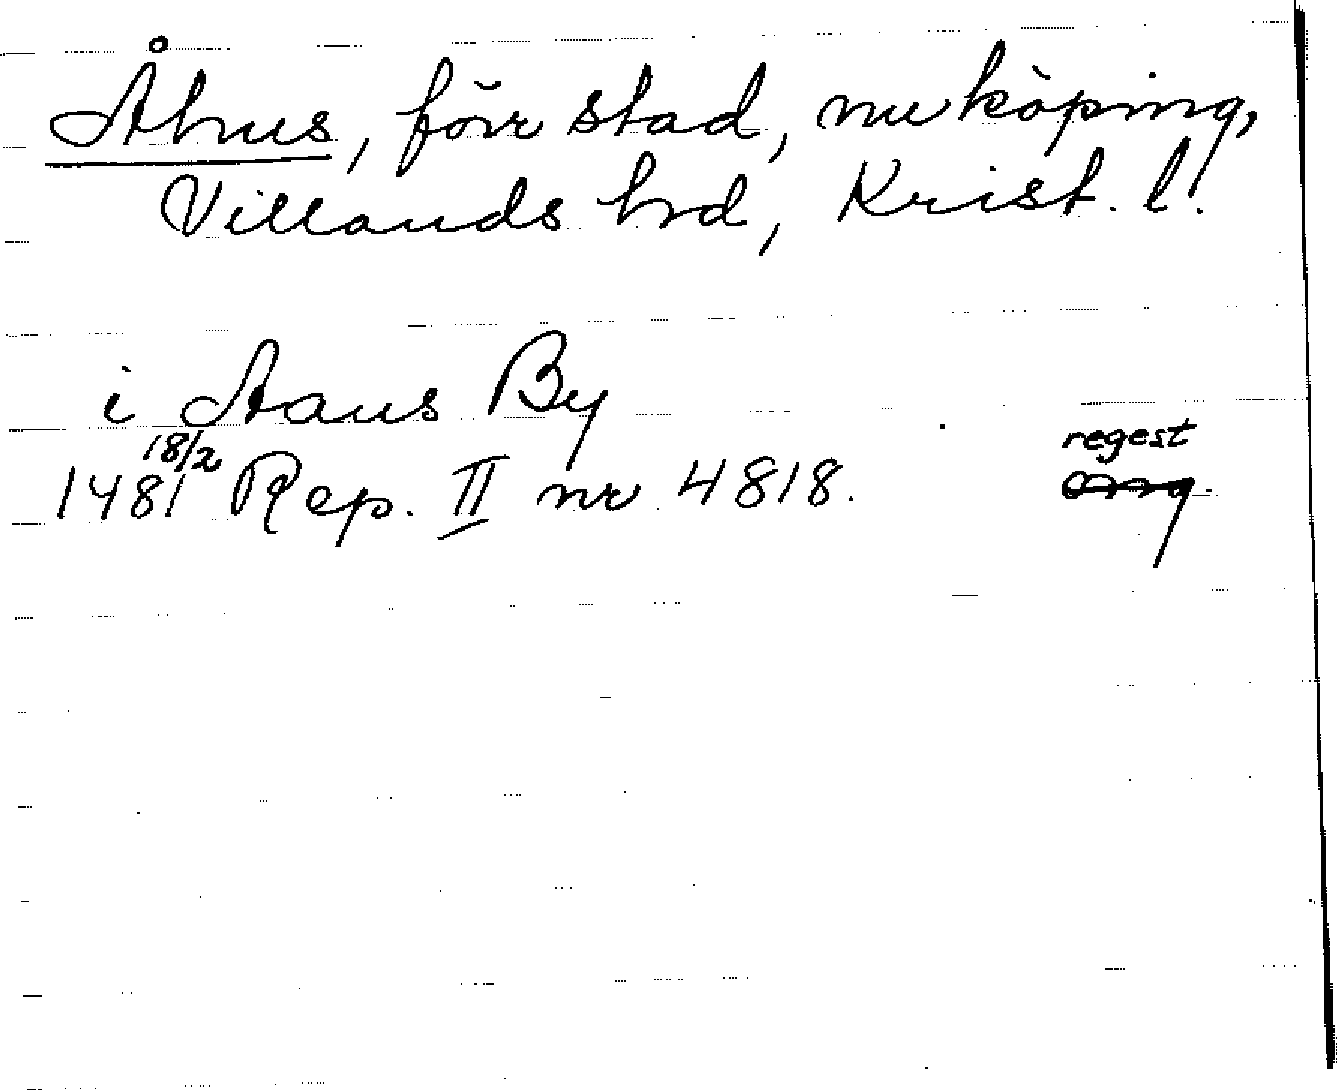 Åhus, förr stad, nu köping,
Villands hrd, Krist. l.
i Aaus By
1481 18/2 Rep. II nr 4818.
regest